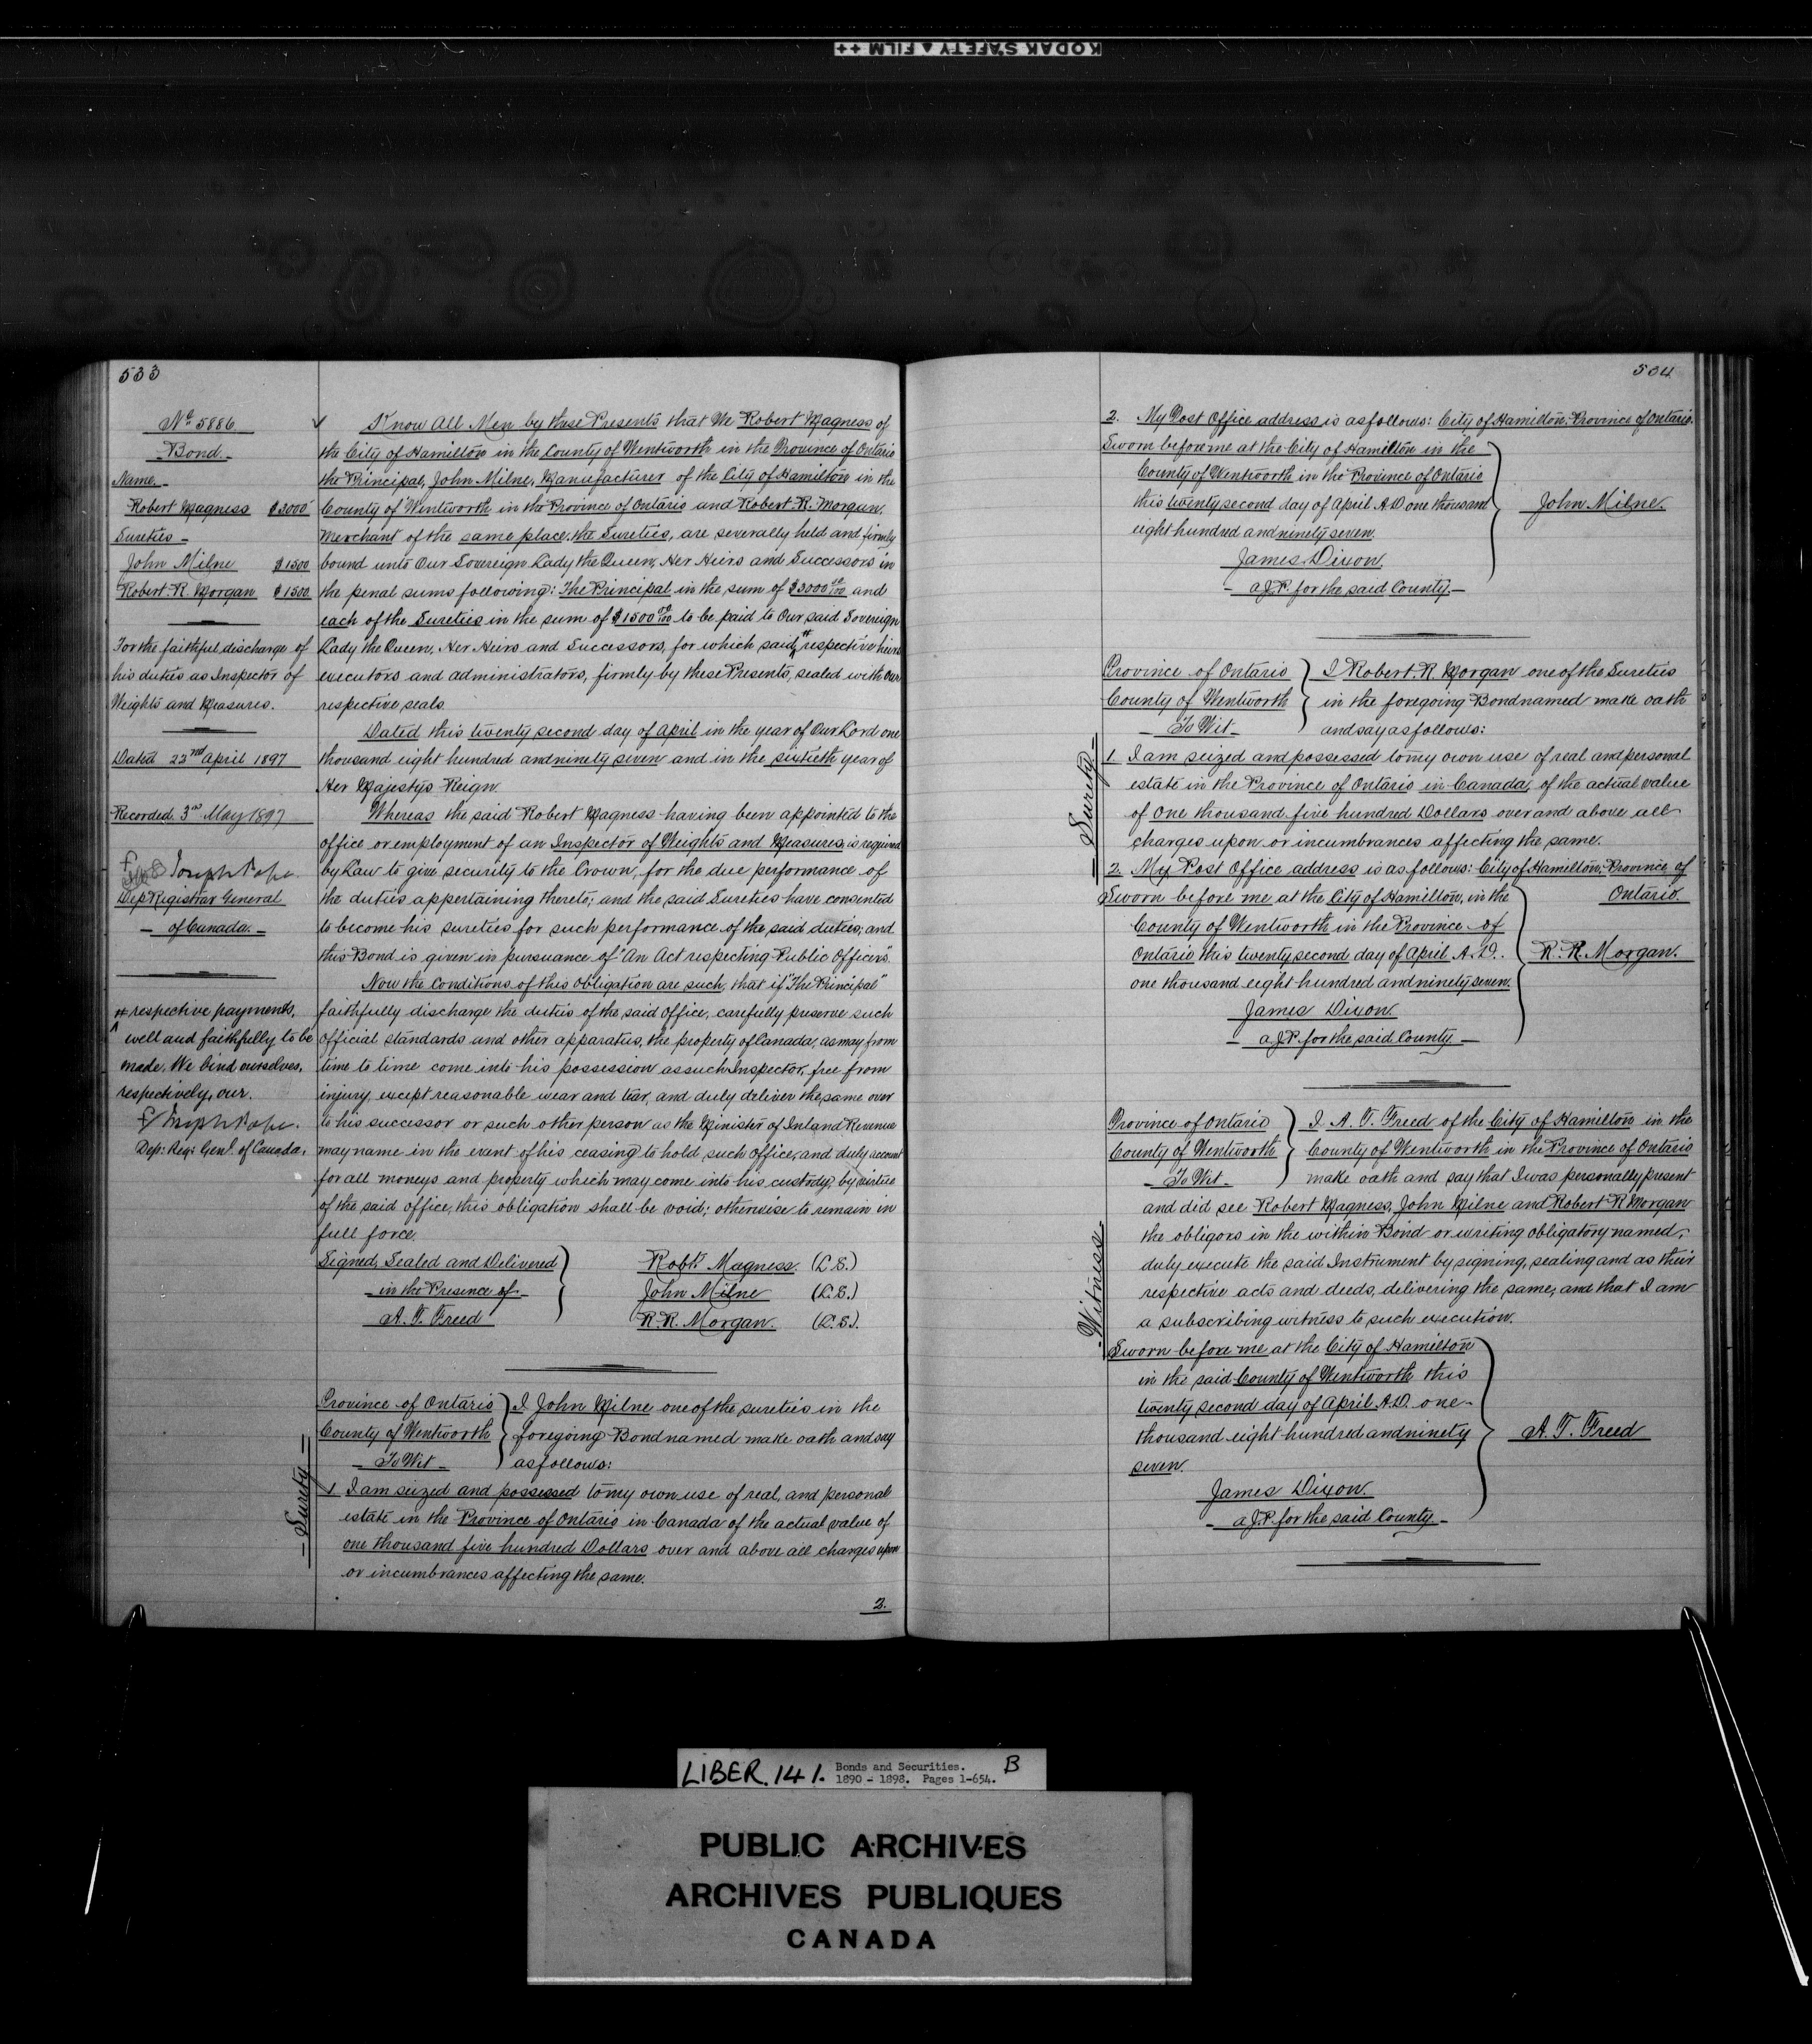 KODAK SAFETY ▲ FILM ++
533
Nº 5886
Bond
Name
Robert Magness $3000
Sureties
John Milne $1500
Robert R. Morgan $1500
For the faithful discharge of
his duties as Inspector of
Weights and Measures.
Dated 22nd April 1897
Recorded 3rd May 1897
Joseph Pope
Dep Registrar General
of Canada.
* respective payments,
well and faithfully to be
made. We bind ourselves,
respectively, our.
Joseph Pope.
Dep: Reg: Genl. of Canada.
Know All Men by these Presents that We Robert Magness of
the City of Hamilton in the County of Wentworth in the Province of Ontario
the Principal, John Milne, Manufacturer of the City of Hamilton in the
County of Wentworth in the Province of Ontario and Robert R. Morgan,
Merchant of the same place, the Sureties, are severally held and firmly
bound unto Our Sovereign Lady the Queen, Her Heirs and Successors in
the penal sums following: The Principal in the sum of $3000 00/100 and
each of the Sureties in the sum of $1500 00/100 to be paid to Our said Sovereign
Lady the Queen, Her Heirs and Successors, for which said * respective heirs
executors and administrators, firmly by these Presents, sealed with our
respective seals.
Dated this twenty second day of April in the year of Our Lord one
thousand eight hundred and ninety seven and in the sixtieth year of
Her Majestys Reign.
Whereas the said Robert Magness having been appointed to the
office or employment of an Inspector of Weights and Measures, is required
by Law to give security to the Crown, for the due performance of
the duties appertaining thereto; and the said Sureties have consented
to become his sureties for such performance of the said duties; and
this Bond is given in pursuance of "An Act respecting Public Officers."
Now the Conditions of this Obligation are such, that if "The Principal"
faithfully discharge the duties of the said Office, carefully preserve such
official standards and other apparatus, the property of Canada, as may from
time to time come into his possession as such Inspector, free from
injury, except reasonable wear and tear, and duly deliver the same over
to his successor or such other person as the Minister of Inland Revenue
may name in the event of his ceasing to hold such office, and duly account
for all moneys and property which may come into his custody, by virtue
of the said office, this obligation shall be void; otherwise to remain in
full force.
Signed, Sealed and Delivered
in the Presence of
A. T. Freed
Robt. Magness (L.S.)
John Milne (L.S.)
R. R. Morgan. (L.S.)
Surety
Province of Ontario
County of Wentworth
To Wit
I John Milne one of the sureties in the
foregoing Bond named make oath and say
as follows:
1 I am seized and possessed to my own use of real, and personal
estate in the Province of Ontario in Canada of the actual value of
one thousand five hundred Dollars over and above all charges upon
or incumbrances affecting the same.
2.
534
2. My Post Office address is as follows: City of Hamilton, Province of Ontario.
Sworn before me at the City of Hamilton in the
County of Wentworth in the Province of Ontario
this twenty second day of April A.D one thousand
eight hundred and ninety seven.
John Milne.
James Dixon.
a J.P. for the said County.
Surety
Province of Ontario
County of Wentworth
To Wit
I Robert. R. Morgan one of the Sureties
in the foregoing Bond named make oath
and say as follows:
1. I am seized and possessed to my own use of real and personal
estate in the Province of Ontario in Canada, of the actual value
of One thousand five hundred Dollars over and above all
charges upon or incumbrances affecting the same.
2. My Post Office address is as follows: City of Hamilton, Province of
Ontario.
Sworn before me at the City of Hamilton, in the
County of Wentworth in the Province of
Ontario this twenty second day of April A.D.
one thousand eight hundred and ninety seven.
R. R. Morgan.
James Dixon
a J.P. for the said County
Witness
Province of Ontario
County of Wentworth
To Wit
I A. T. Freed of the City of Hamilton in the
County of Wentworth in the Province of Ontario
make oath and say that I was personally present
and did see Robert Magness, John Milne and Robert R Morgan
the obligors in the within Bond or writing obligatory named,
duly execute the said Instrument by signing, sealing and as their
respective acts and deeds, delivering the same, and that I am
a subscribing witness to such execution.
Sworn before me at the City of Hamilton
in the said County of Wentworth this
twenty second day of April A.D. one
thousand eight hundred and ninety
seven.
A. T. Freed
James Dixon.
a J.P. for the said County
LIBER. 141. Bonds and Securities. B
1890 - 1898. Pages 1-654.
PUBLIC ARCHIVES
ARCHIVES PUBLIQUES
CANADA